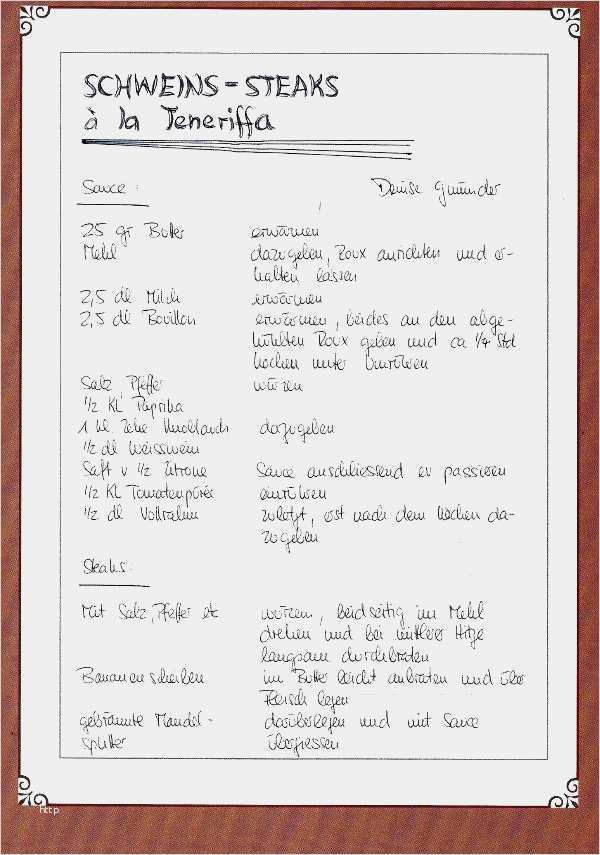 SCHWEINS-STEAKS
à la Teneriffa
Sauce: Denise Gmünder
25 gr Butter erwärmen
Mehl dazugeben, Roux anrichten und er-
kalten lassen
2,5 dl Milch erwärmen
2,5 dl Bouillon erwärmen, beides an den abge-
kühlten Roux geben und ca 1/4 Std
kochen unter Umrühren
Salz, Pfeffer würzen
1/2 KL Paprika
1 kl Zehe Knoblauch dazugeben
1/2 dl Weisswein
Saft v 1/2 Zitrone Sauce anschliessend ev passieren
1/2 KL Tomatenpurée einrühren
1/2 dl Vollrahm zuletzt, erst nach dem Kochen da-
zugeben
Steaks:
Mit Salz, Pfeffer etc würzen, beidseitig im Mehl
drehen und bei mittlerer Hitze
langsam durchbraten
Bananenscheiben im Butter leicht anbraten und über
Fleisch legen
gebrannte Mandel-
splitter darüberlegen und mit Sauce
übergiessen
http